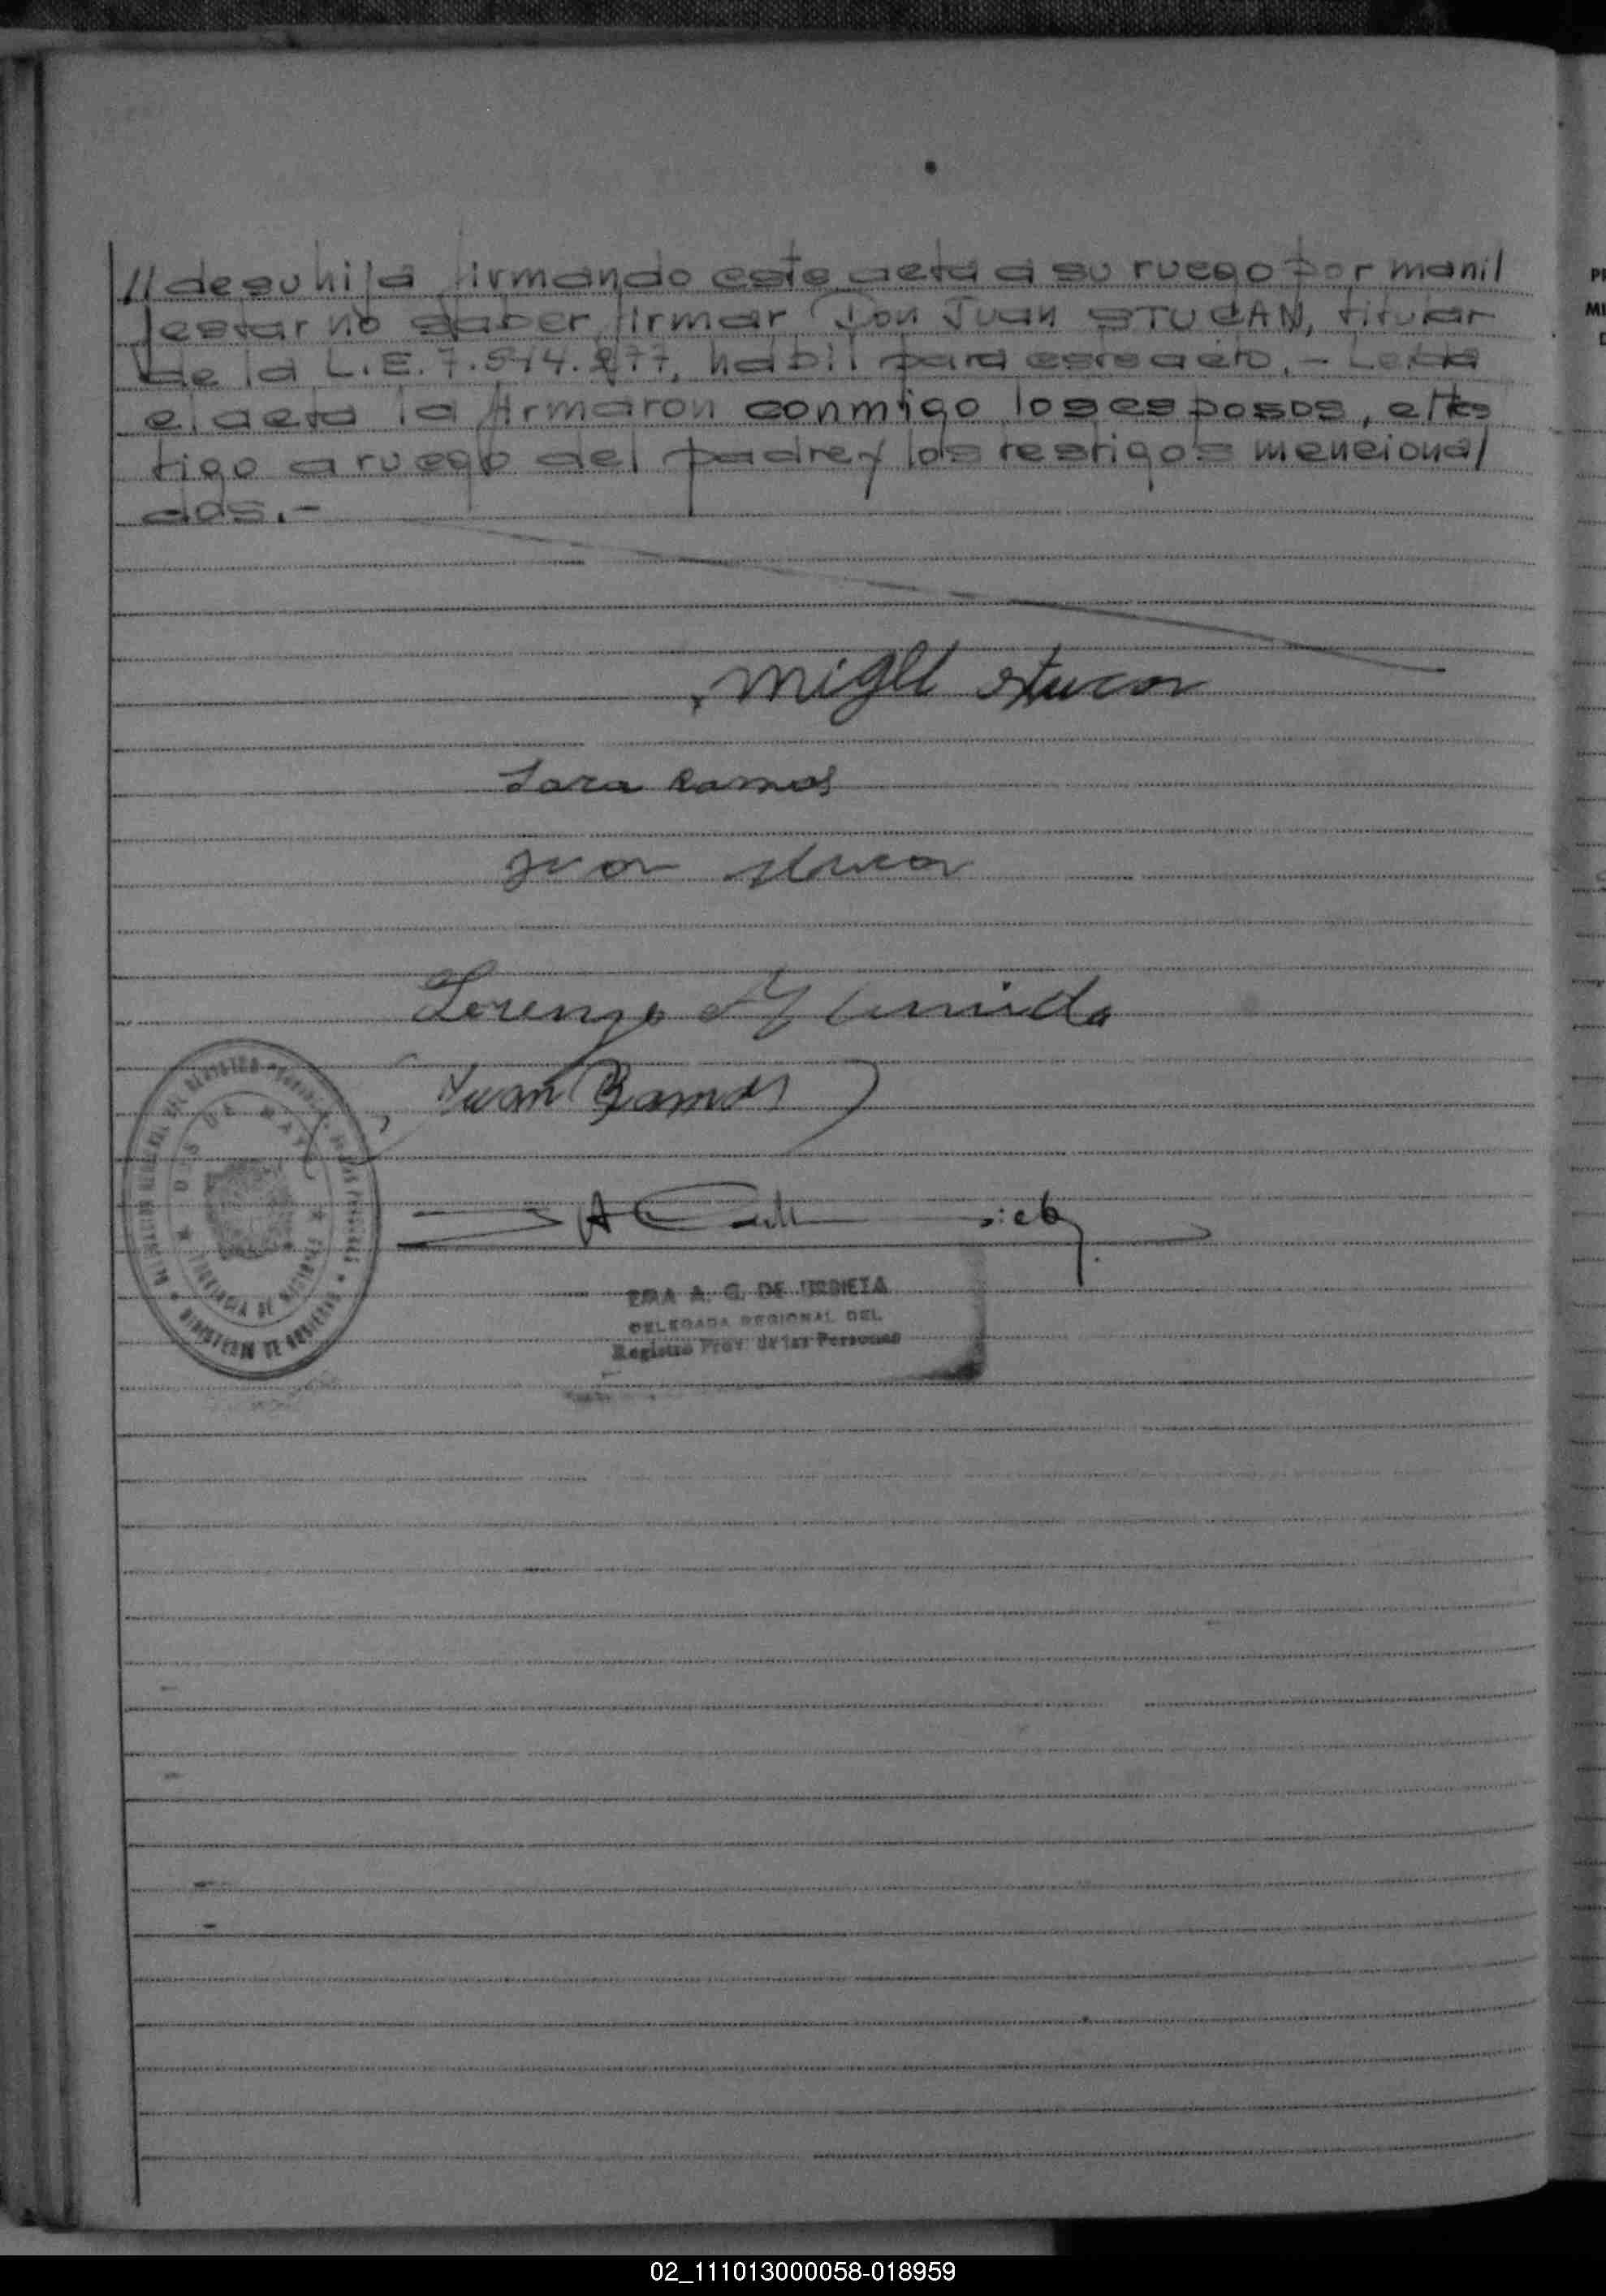 // de su hija firmando este acta a su ruego por mani/
festar no saber firmar Don Juan STUCAN, titular
de la L.E. 7.514.277, habil para este acto. - Leida
el acta la firmaron conmigo los esposos, el tes
tigo a ruego del padre y los testigos menciona/
dos.-
Migel stucan
Sara Ramos
Juan stucan
Lorenzo
Juan Ramos
DOS DE MAYO
PROVINCIA DE MISIONES
MINISTERIO DE GOBIERNO
A. G. DE URDIETA
DELEGADA REGIONAL DEL
Registro Prov. de las Personas
02_111013000058-018959